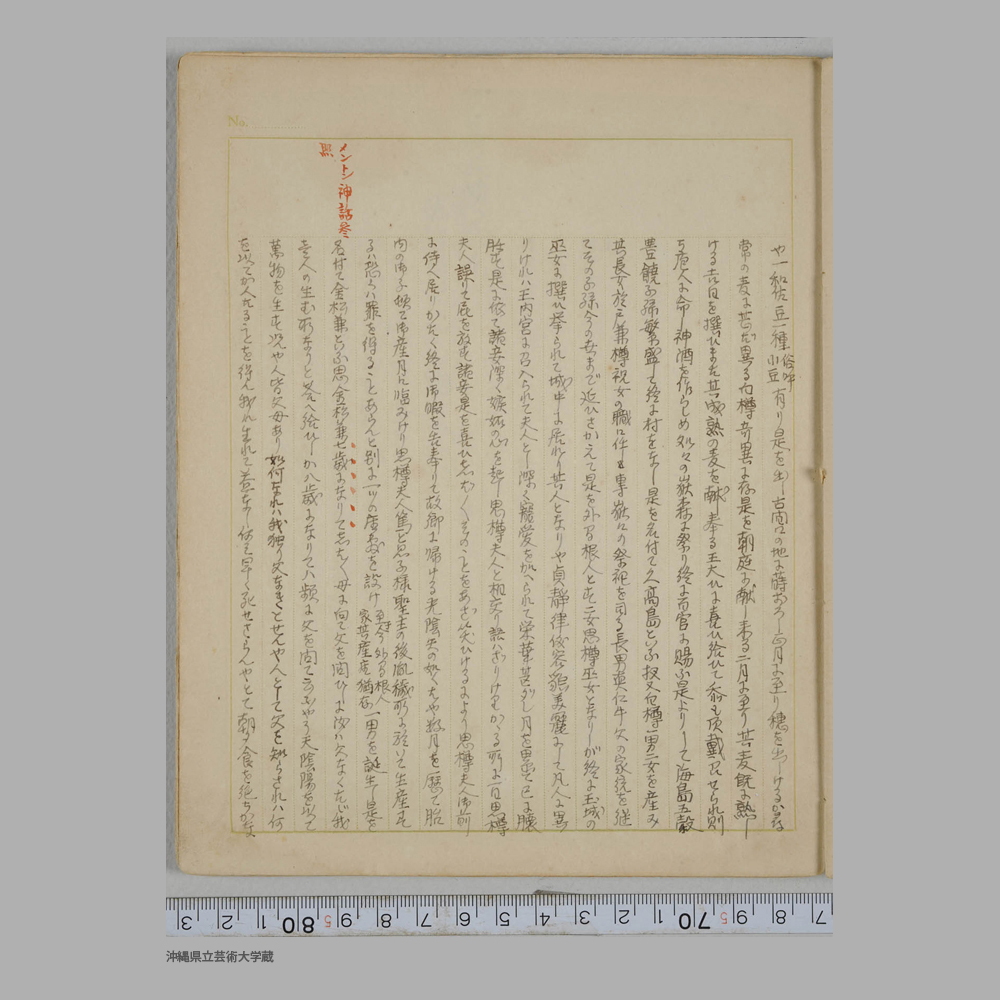 No.
メントン神話参
照
や一和佐豆一種俗呼小豆有り是を出し古間口の地に蒔おろし正月に至り穂を出しけるか尋
常の麦に甚だ異る白樽奇異に存是を朝庭に献し来る二月に至り其麦既に熟し
ける吉日を撰ひまた其成熟の麦を献し奉る王大ひに喜ひ給ひて忝も頂戴召せられ則
ち庖人に命し神酒を作らしめ処々の嶽森に祭り終に百官に賜ふ是よりして海島五穀
豊饒子孫繁盛して終に村をなし是を名付て久高島といふ扨又白樽一男二女を産み
其長女於戸兼樽祝女の職に任も専嶽々の祭祀を司る長男真仁牛父の家統を継
てその子孫今の世まで延ひさかえて是を外間根人とも二女思樽巫女となりしが終に玉城の
巫女に撰ひ挙られて城中に居れり其人となりや貞静律儀容貌美麗にして凡人に異
りけれハ王内宮に召入られて夫人とし深く寵愛を加へられて栄華甚だし月を累て已に懐
胎も是に依て諸妾深く嫉妬の心を起し思樽夫人と相交り語ハざりけるかかる所に一日思樽
夫人誤て屁を放も諸妾是を喜ひしたしくそのことをあざ笑ひけるにより思樽夫人御前
に侍へ居りかたく終に御暇を告奉りて故郷に帰ける光陰矢の如くもや数月を歴て胎
内の御子振て御産月に臨みけり思樽夫人篤と思ふ様聖主の後胤穢所に於いて生産す
るハ恐らハ罪を得ることあらんと別に一ツの居処を設け至今外間根人家其産座猶存一男を誕生し是を
名付て金松兼といふ思金松兼七歳になりてしたしく母に向て父を問ひしに汝ハ父なくただ我
壱人の生む所なりと答へ給ひしか八歳になりてハ頻に父を問て云もやう天陰陽を以て
萬物を生も況や人皆父母あり如何なれハ我独り父なきとせんや人として父を知らされハ何
を以てか人たることを得ん我れ生れて益なし何そ早く死せさらんやとて朝夕食を絶ちかな
3 2 1 80 9 8 7 6 5 4 3 2 1 70 9 8 7
沖縄県立芸術大学蔵